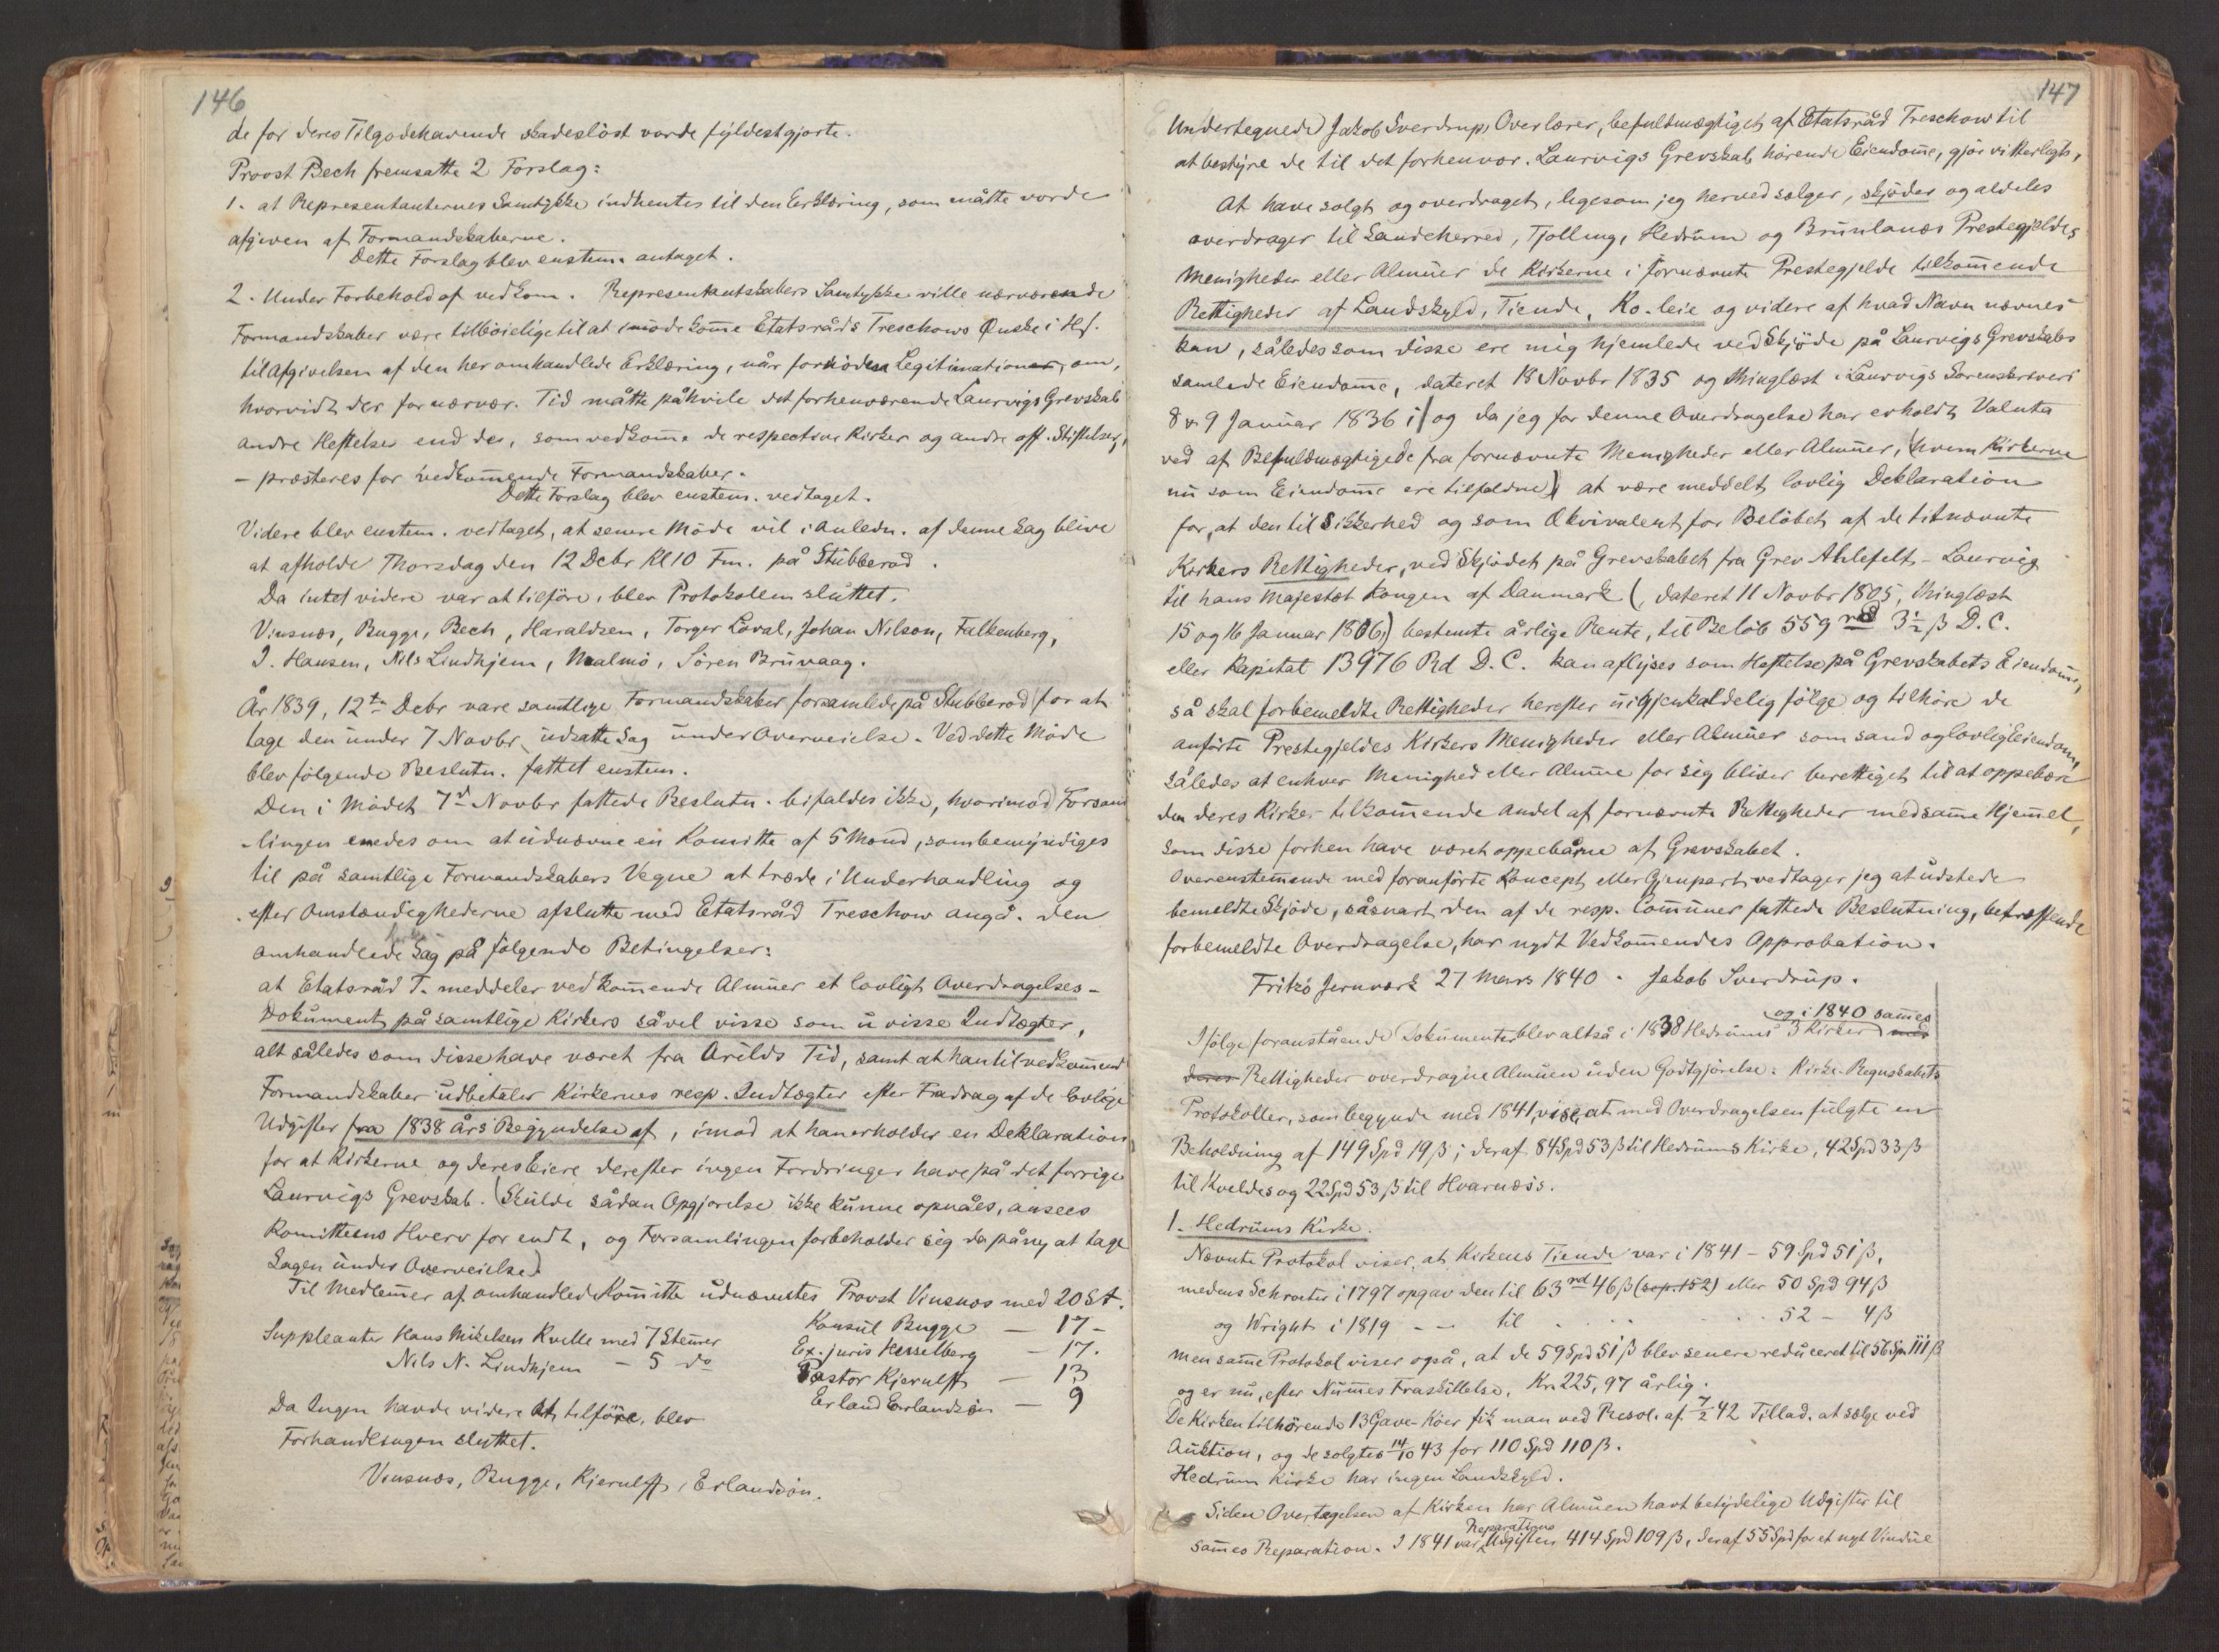 146
de for deres Tilgodehavende skadeslöst vorde fyldestgjorte.
Provst Bech fremsatte 2 Forslag:
1. at Representanternes Samtykke indhentes til den Erklæring, som måtte vorde
afgiven af Formandskaberne.
Dette Forslag blev enstem. antaget.
2. Under Forbehold af vedkom. Representantskabers Samtykke ville nærværende
Formandskaber være tilböielige til at imödekom̅e Etatsråds Treschows Önske i Hs.
til Afgivelsen af den her omhandlede Erklæring, når fornöden Legitimation, om,
hvorvidt der for nærvær. Tid måtte påhvile det forhenværende Laurvigs Grevskab
andre Heftelser end de, som vedkom̅e de respective Kirker og andre off. Stiftelser,
- præsteres for vedkom̅ende Formandskaber.
Dette Forslag blev enstem. vedtaget.
Videre blev enstem. vedtaget, at senere Möde vil i Anledn. af denne Sag blive
at afholde Thorsdag den 12 Dcbr Kl 10 Fm. på Stubberöd.
Da intet videre var at tilföre, blev Protokollen sluttet.
Vinsnes, Bugge, Bech, Haraldsen, Torger Löval, Johan Nilson, Falkenberg,
I. Hansen, Nils Lindhjem, Malmö, Sören Brüvaag.
År 1839, 12te Dcbr vare samtlige Formandskaber forsamlede på Stubberöd for at
tage den under 7 Novbr udsatte Sag under Overveielse. Ved dette Möde
blev fölgende Beslutn. fattet enstem.
Den i Mödet 7d Novbr fattede Beslutn. bifaldes ikke, hvorimod Forsam
-lingen enedes om at udnævne en Komitte af 5 Mænd, som bemyndiges
til på samtlige Formandskabers Vegne at træde i Underhandling og
efter Omstændighederne afslutte med Etatsråd Treschow angå. den
omhandlede Sag på fölgende Betingelser:
at Etatsråd T. meddeler vedkom̅ende Almuer et lovligt Overdragelses-
Dokument på samtlige Kirkers såvel visse som uvisse Indtægter,
alt således som disse have været fra Arilds Tid, samt at han til vedkom̅ende
Formandskaber udbetaler Kirkernes resp. Indtægter efter Fradrag af de lovlige
Udgifter fra 1838 års Begyndelse af, imod at han erholder en Deklaration
for at Kirkerne og deres Eiere derefter ingen Fordringer have på det forrige
Laurvigs Grevskab. (Skulde sådan Opgjörelse ikke kunne opnåes, ansees
Komitteens Hverv for endt, og Forsamlingen forbeholder sig da påny at tage
Sagen under Overveielse)
Til Medlem̅er af omhandlede Kom̅itte udnævntes Provst Vinsnes med 20 St.
Konsul Bugge — 17 -
Suppleanter Hans Mikelsen Kvelle med 7 Stem̅er
Ex. juris Hesselberg — 17.
Nils N. Lindhjem — 5 do
Pastor Kjerulff — 13
Erland Erlandsön — 9
Da Ingen havde videre at tilföre, blev
Forhandlingen sluttet.
Vinsnes, Bugge, Kjerulff, Erlandsön.
147
Undertegnede Jakob Sverdrup, Overlærer, befuldmægtiget af Etatsråd Treschow til
at bestyre de til det forhenvær. Laurvigs Grevskab hörende Eiendom̅e, gjör vitterligt,
At have solgt og overdraget, ligesom jeg herved sælger, skjöder og aldeles
overdrager til Sandeherred, Tjölling, Hedrum og Brunlanes Prestegjeldes
Menigheder eller Almuer de Kirkerne i fornævnte Prestegjelde tilkom̅ende
Rettigheder af Landskyld, Tiende, Ko-leie og videre af hvad Navn nævnes
kan, således som disse ere mig hjemlede ved Skjöde på Laurvigs Grevskabs
samlede Eiendom̅e, dateret 18 Novbr 1835 og thinglæst i Laurvigs Sorenskriveri
8 & 9 Januar 1836; og da jeg for denne Overdragelse har erholdt Valuta
ved af Befuldmægtigede fra fornævnte Menigheder eller Almuer, (hvem Kirkerne
nu som Eiendom̅e ere tilfaldne) at være meddelt lovlig Deklaration
for, at den til Sikkerhed og som Ækvivalent for Belöbet af de titnævnte
Kirkers Rettigheder, ved Skjödet på Grevskabet fra Grev Ahlefelt-Laurvig
til hans Majestæt Kongen af Danmark (, dateret 11 Novbr 1805, thinglæst
15 og 16 Januar 1806,) bestemte årlige Rente, til Belöb 559 rd 3½ ß D.C.
eller Kapital 13976 Rd D.C. kan aflyses som Heftelse på Grevskabets Eiendom̅e,
så skal forbemeldte Rettigheder herefter uigjenkaldelig fölge og tilhöre de
anförte Prestegjeldes Kirkers Menigheder eller Almuer som sand og lovlig Eiendom,
således at enhver Menighed eller Almue for sig bliver berettiget til at oppebære
den deres Kirker tilkom̅ende Andel af fornævnte Rettigheder med sam̅e Hjem̅el,
som disse forhen have været oppebårne af Grevskabet.
Overenstem̅ende med foranförte Koncept eller Gjenpart vedtager jeg at udstede
bemeldte Skjöde, såsnart den af de resp. Com̅uner fattede Beslutning, betræffende
forbemeldte Overdragelse, har nydt Vedkom̅endes Approbation.
Fritzö Jernværk 27 Mars 1840. Jakob Sverdrup.
og i 1840 sam̅es
Ifölge foranstående Dokumenter blev altså i 1838 Hedrums 3 Kirker med
deres Rettigheder overdragne Almuen uden Godtgjörelse. Kirke-Regnskabets
Protokoller, som begynde med 1841, vise, at med Overdragelsen fulgte en
Beholdning af 149 Spd 19 ß; deraf 84 Spd 53 ß til Hedrums Kirke, 42 Spd 33 ß
til Kveldes og 22 Spd 53 ß til Hvarnæss.
1. Hedrums Kirke.
Nævnte Protokol viser, at Kirkens Tiende var i 1841 - 59 Spd 51 ß,
medens Schröter i 1797 opgav den til 63 rd 46 ß (se p. 152) eller 50 Spd 94 ß
og Wright i 1819 - - til . . . . 52 - 4 ß
men sam̅e Protokol viser også, at de 59 Spd 51 ß blev senere reduceret til 56 Spd 111 ß
og er nu, efter Num̅es Fraskillelse, Kr. 225,97 årlig.
De Kirken tilhörende 13 Gave-Köer fik man ved Resol. af 7/2 42 Tillad. at sælge ved
Auktion, og de solgtes 14/10 43 for 110 Spd 110 ß.
Hedrum Kirke har ingen Landskyld.
Siden Overtagelsen af Kirken har Almuen havt betydelige Udgifter til
Reparations
sam̅es Reparation. I 1841 var Udgiften 414 Spd 109 ß, deraf 55 Spd for et nyt Vindue